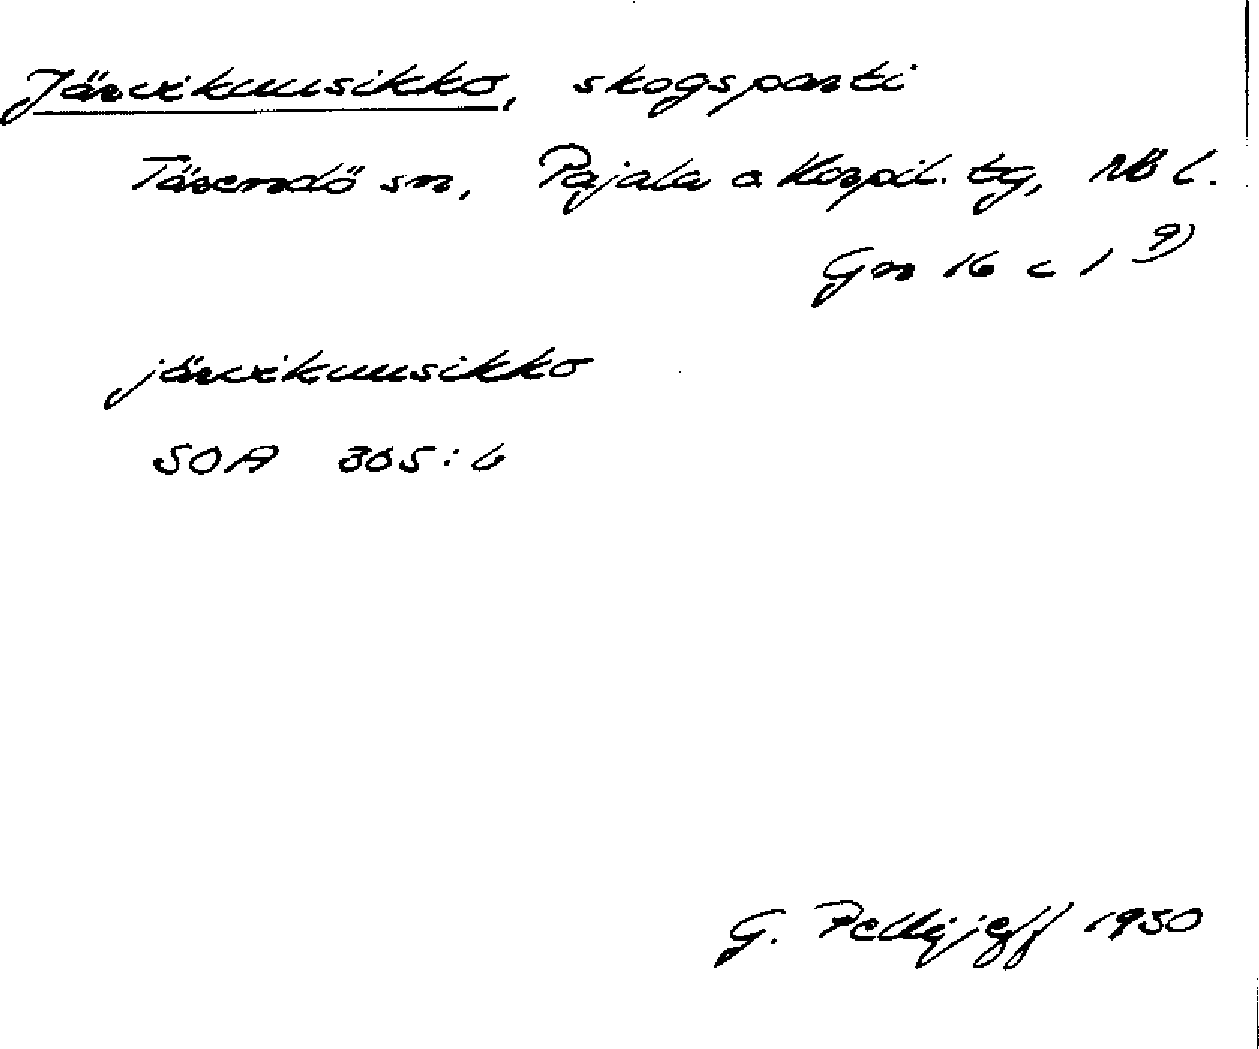 Järvikuusikko, skogsparti
Tärendö sn, Pajala o Korpil. tg, Nb l.
Gm 16 c 1 9)
järvikuusikko
SOA 365:6
G. Pellijeff 1950